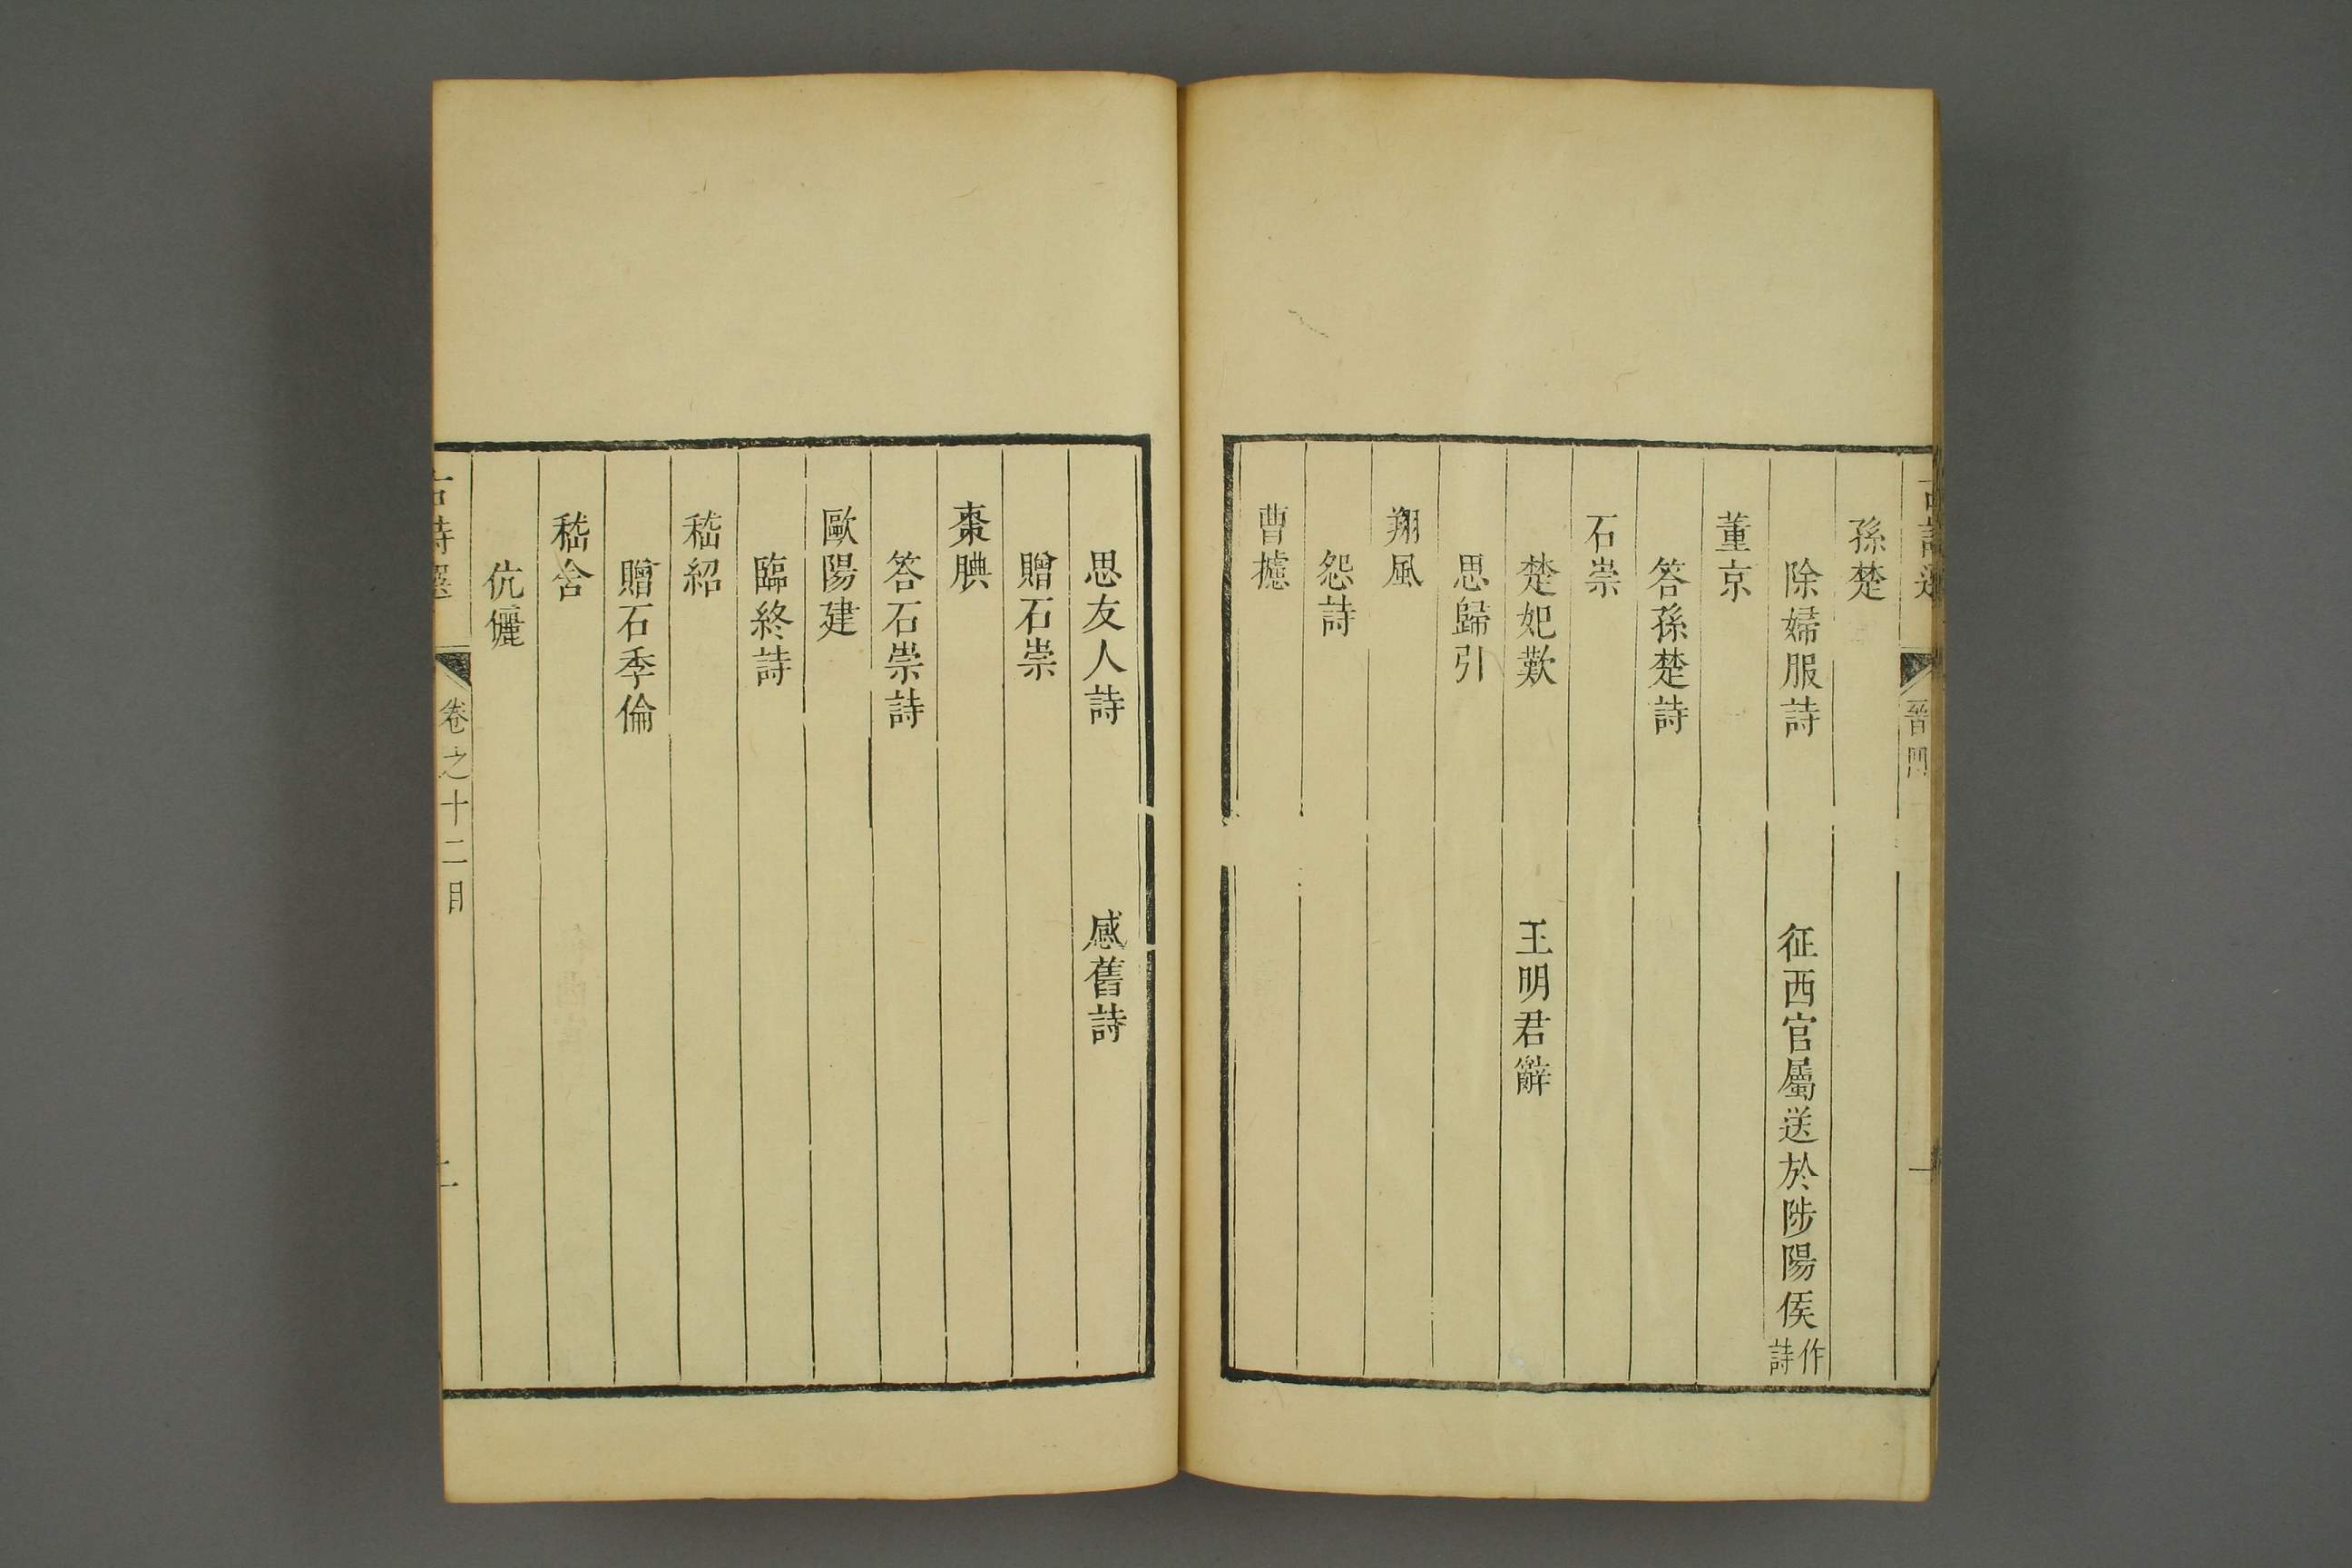 晉四
一
孫楚
除婦服詩　征西官屬送於陟陽侯作詩
董京
答孫楚詩
石崇
楚妃歎　王明君辭
思歸引
翔風
怨詩
曹攄
思友人詩　感舊詩
贈石崇
棗腆
答石崇詩
歐陽建
臨終詩
嵇紹
贈石季倫
嵇含
伉儷
古詩選　卷之十二目　二